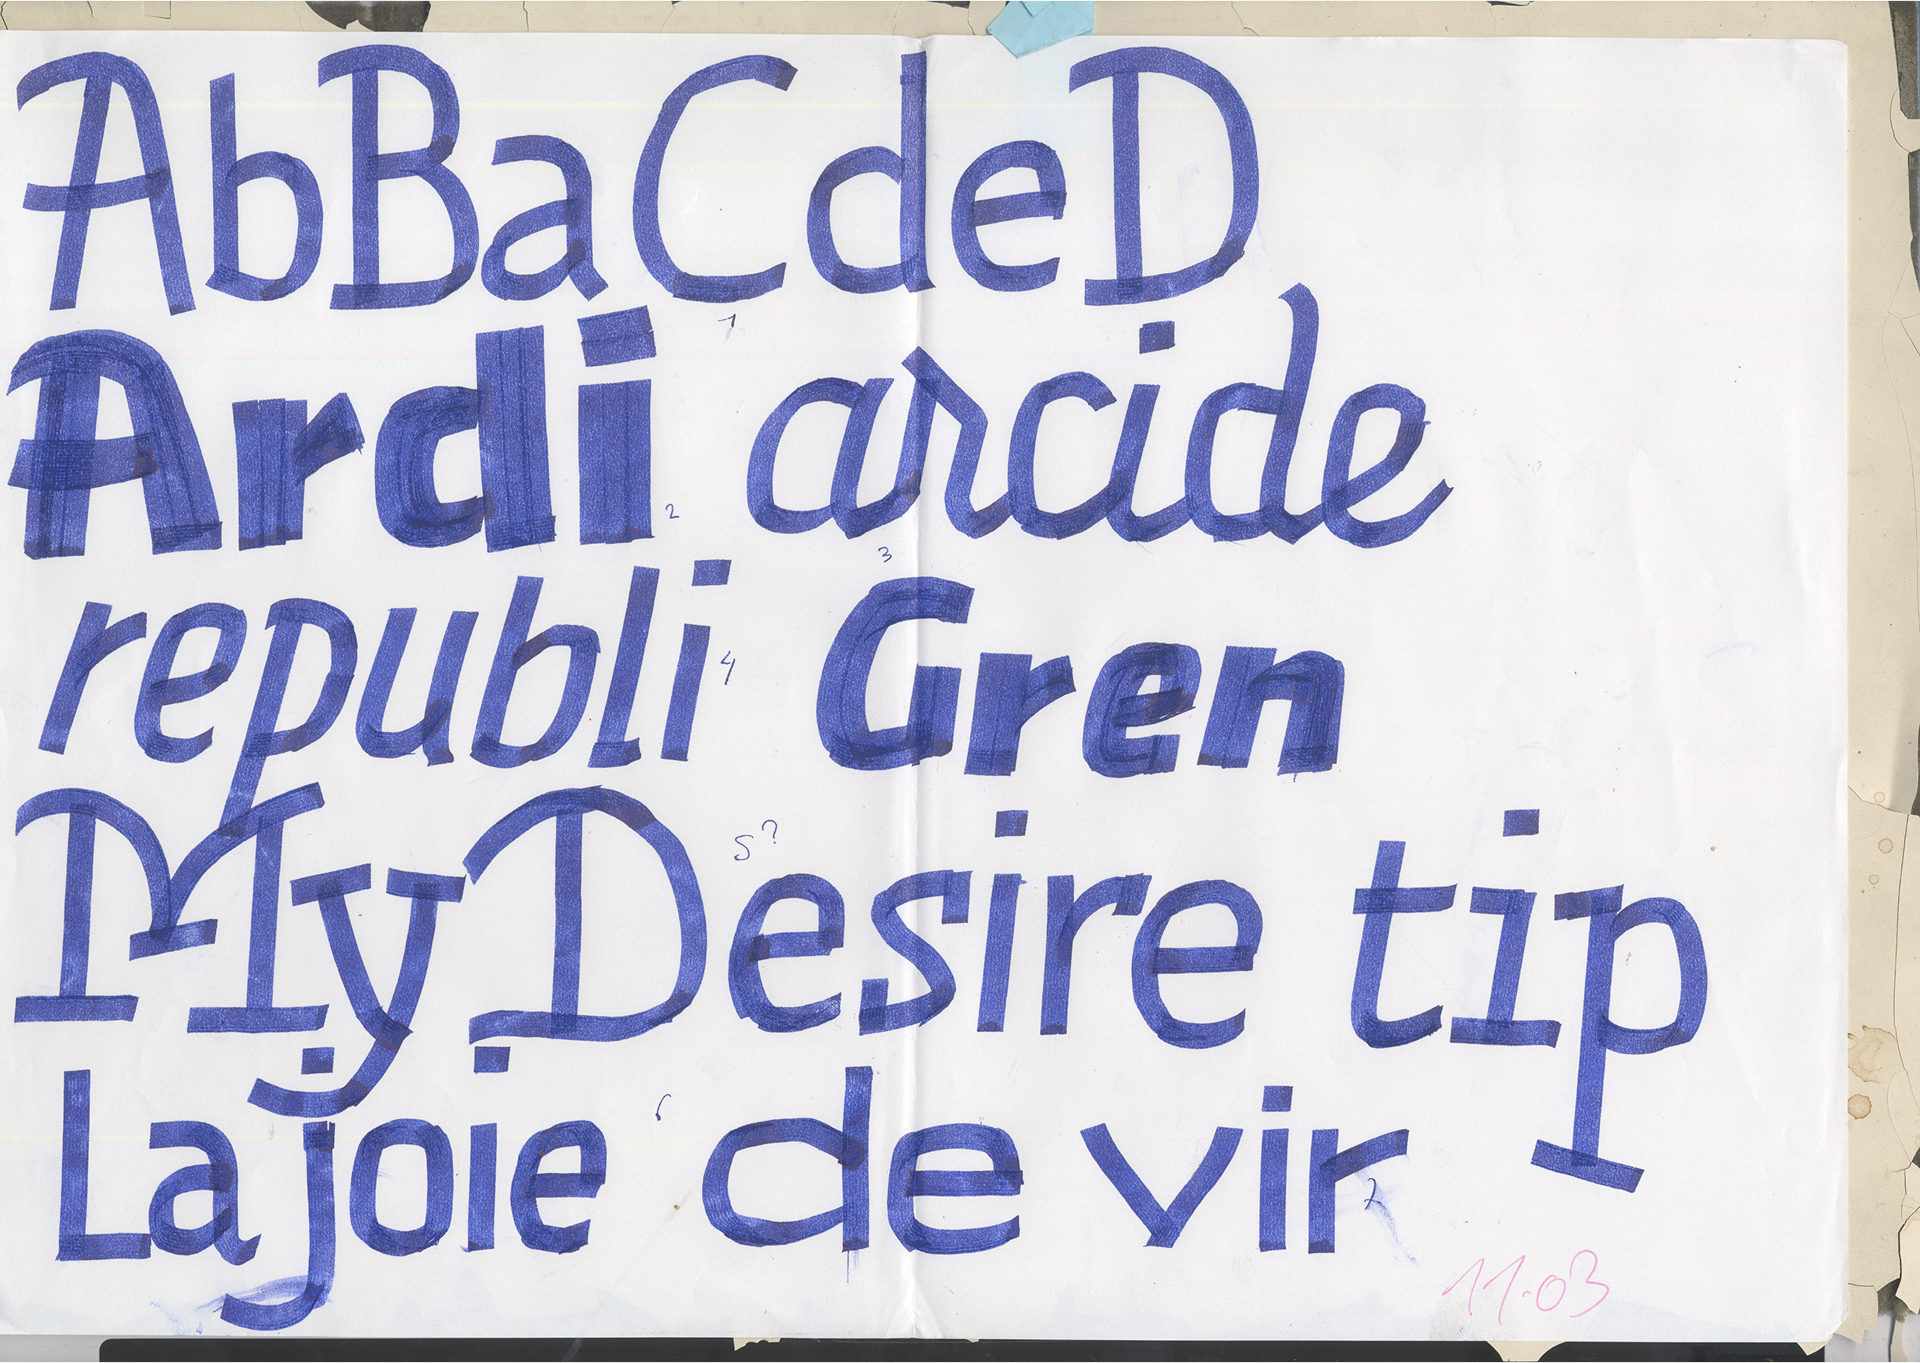 AbBaCdeD
1
Ardi arcide
2
3
republi Gren
4
My Desire tip
5?
La joie de vir
6
7
11.03